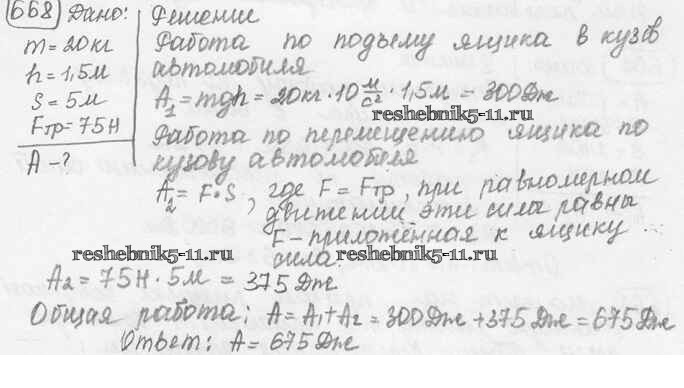 668 Дано:
m = 20 кг
h = 1,5 м
S = 5 м
Fтр = 75 Н
A - ?
Решение
Работа по подъему ящика в кузов
автомобиля
A₁ = mgh = 20 кг · 10 м/с² · 1,5 м = 300 Дж
reshebnik5-11.ru
Работа по перемещению ящика по
кузову автомобиля
A₂ = F · S, где F = Fтр, при равномерном
движении эти силы равны
F - приложенная к ящику
сила.
reshebnik5-11.ru
A₂ = 75 Н · 5 м = 375 Дж
Общая работа: A = A₁ + A₂ = 300 Дж + 375 Дж = 675 Дж
Ответ: A = 675 Дж